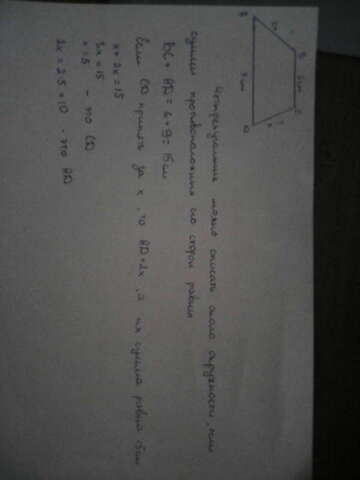 B
6 см
C
2x
x
A
9 см
D
Четырехугольник можно описать около окружности, если
суммы противоположных его сторон равны
BC + AD = 6 + 9 = 15 см
Если CD принять за x, то AB = 2x, а их сумма равна 15 см
x + 2x = 15
3x = 15
x = 5 - это CD
2x = 2·5 = 10 - это AB